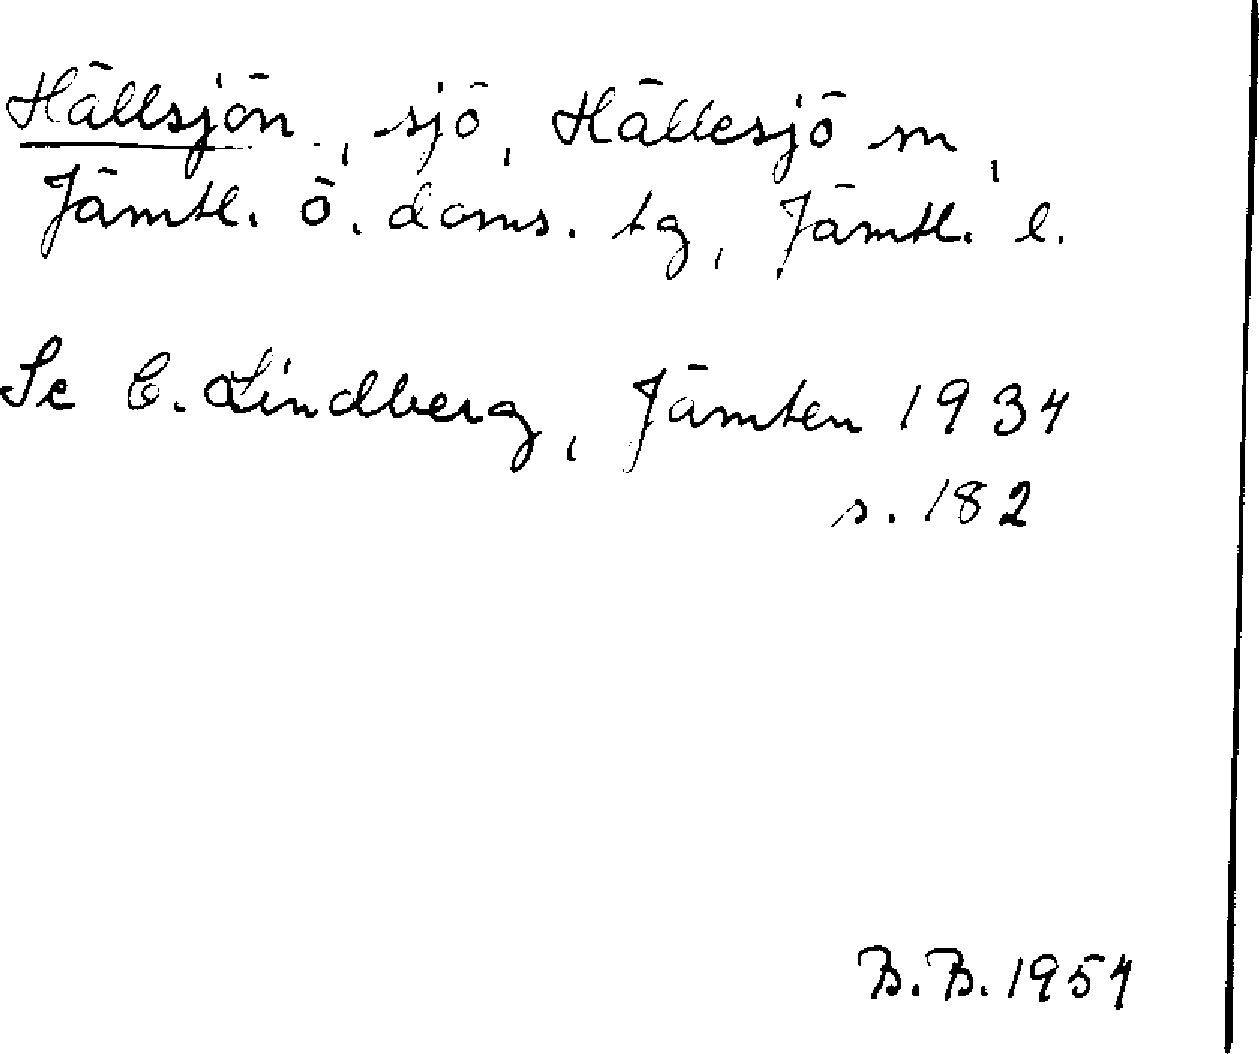 Hällsjön, sjö, Hällesjö sn,
Jämtl. ö. doms. tg, Jämtl. l.
Se C. Lindberg, Jämten 1934
s. 182
B.B. 1954